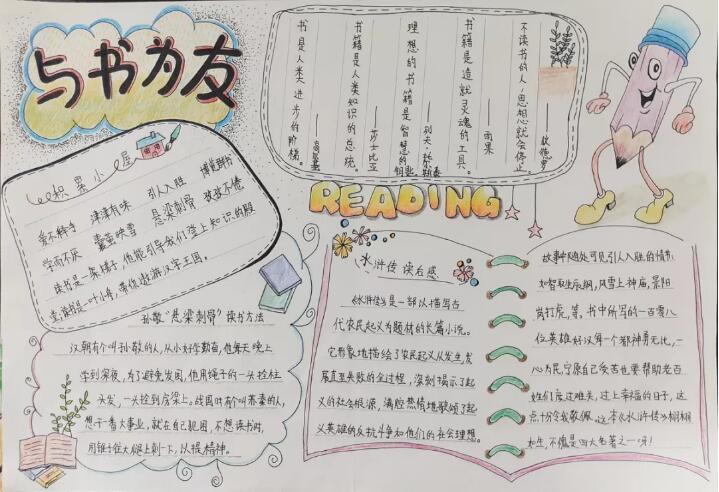 与书为友
不读书的人，思想就会停止。
——狄德罗
书籍是造就灵魂的工具。
——雨果
理想的书籍是智慧的钥匙。
——列夫·托尔斯泰
书籍是人类知识的总统。
——莎士比亚
书是人类进步的阶梯。
——高尔基
READING
积累小屋
爱不释手 津津有味 引人入胜 博览群书
学而不厌 囊萤映雪 悬梁刺骨 孜孜不倦
读书是一架梯子，他能引导我们登上知识的殿
堂，读书是一叶小舟，带你遨游汉字王国。
孙敬"悬梁刺骨"读书方法
汉朝有个叫孙敬的人，从小好学勤奋，他每天晚上
学到深夜，为了避免发困，他用绳子的一头拴柱
头发，一头拴到房梁上。战国时有个叫苏秦的人，
想干一番大事业，就在自己脱困，不想读书时，
用锥子往大腿上刺一下，以提精神。
水浒传 读后感
《水浒传》是一部以描写古
代农民起义为题材的长篇小说。
它形象地描绘了农民起义从发生发
展直至失败的全过程，深刻揭示了起
义的社会根源，满腔热情地歌颂了起
义英雄的反抗斗争和他们的社会理想。
故事中随处可见引人入胜的情节
如智取生辰纲，风雪上神庙，景阳
岗打虎，等。书中所写的一百零八
位英雄好汉每一个都神勇无比，一
心为民，宁原自己受苦也要帮助老百
姓们度过难关，过上幸福的日子，这
点十分令我敬佩。这本《水浒传》栩栩
如生，不愧是四大名著之一呀！